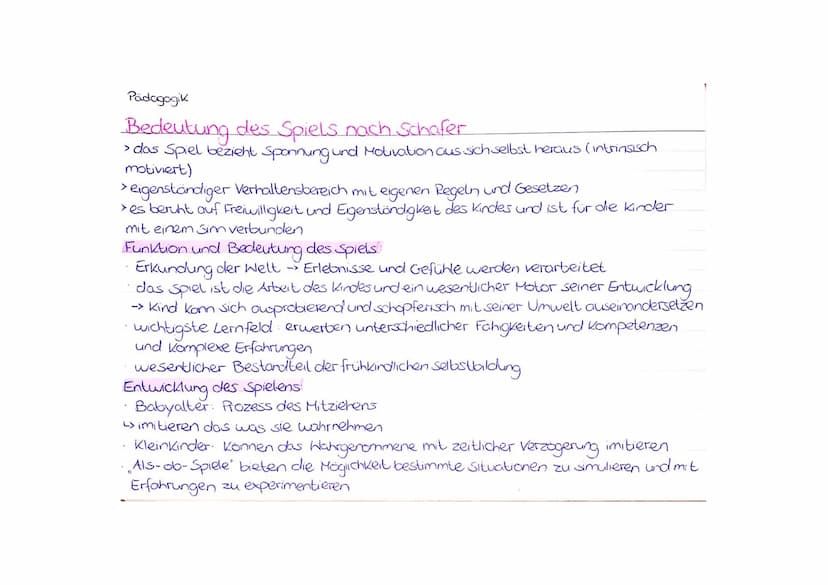 Pädagogik
Bedeutung des Spiels nach Schäfer
> das Spiel bezieht Spannung und Motivation aus sich selbst heraus (intrinsisch
motiviert)
> eigenständiger Verhaltensbereich mit eigenen Regeln und Gesetzen
> es beruht auf Freiwilligkeit und Eigenständigkeit des Kindes und ist für die Kinder
mit einem Sinn verbunden
Funktion und Bedeutung des Spiels:
· Erkundung der Welt → Erlebnisse und Gefühle werden verarbeitet
· das Spiel ist die Arbeit des Kindes und ein wesentlicher Motor seiner Entwicklung
→ Kind kann sich ausprobierend und schöpferisch mit seiner Umwelt auseinandersetzen
· wichtigste Lernfeld: erwerben unterschiedlicher Fähigkeiten und Kompetenzen
und komplexe Erfahrungen
· wesentlicher Bestandteil der frühkindlichen selbstbildung
Entwicklung des Spielens:
· Babyalter: Prozess des Mitziehens
↳ imitieren das was sie wahrnehmen
· Kleinkinder: können das Wahrgenommene mit zeitlicher Verzögerung imitieren
· „Als-ob-Spiele" bieten die Möglichkeit bestimmte Situationen zu simulieren und mit
Erfahrungen zu experimentieren